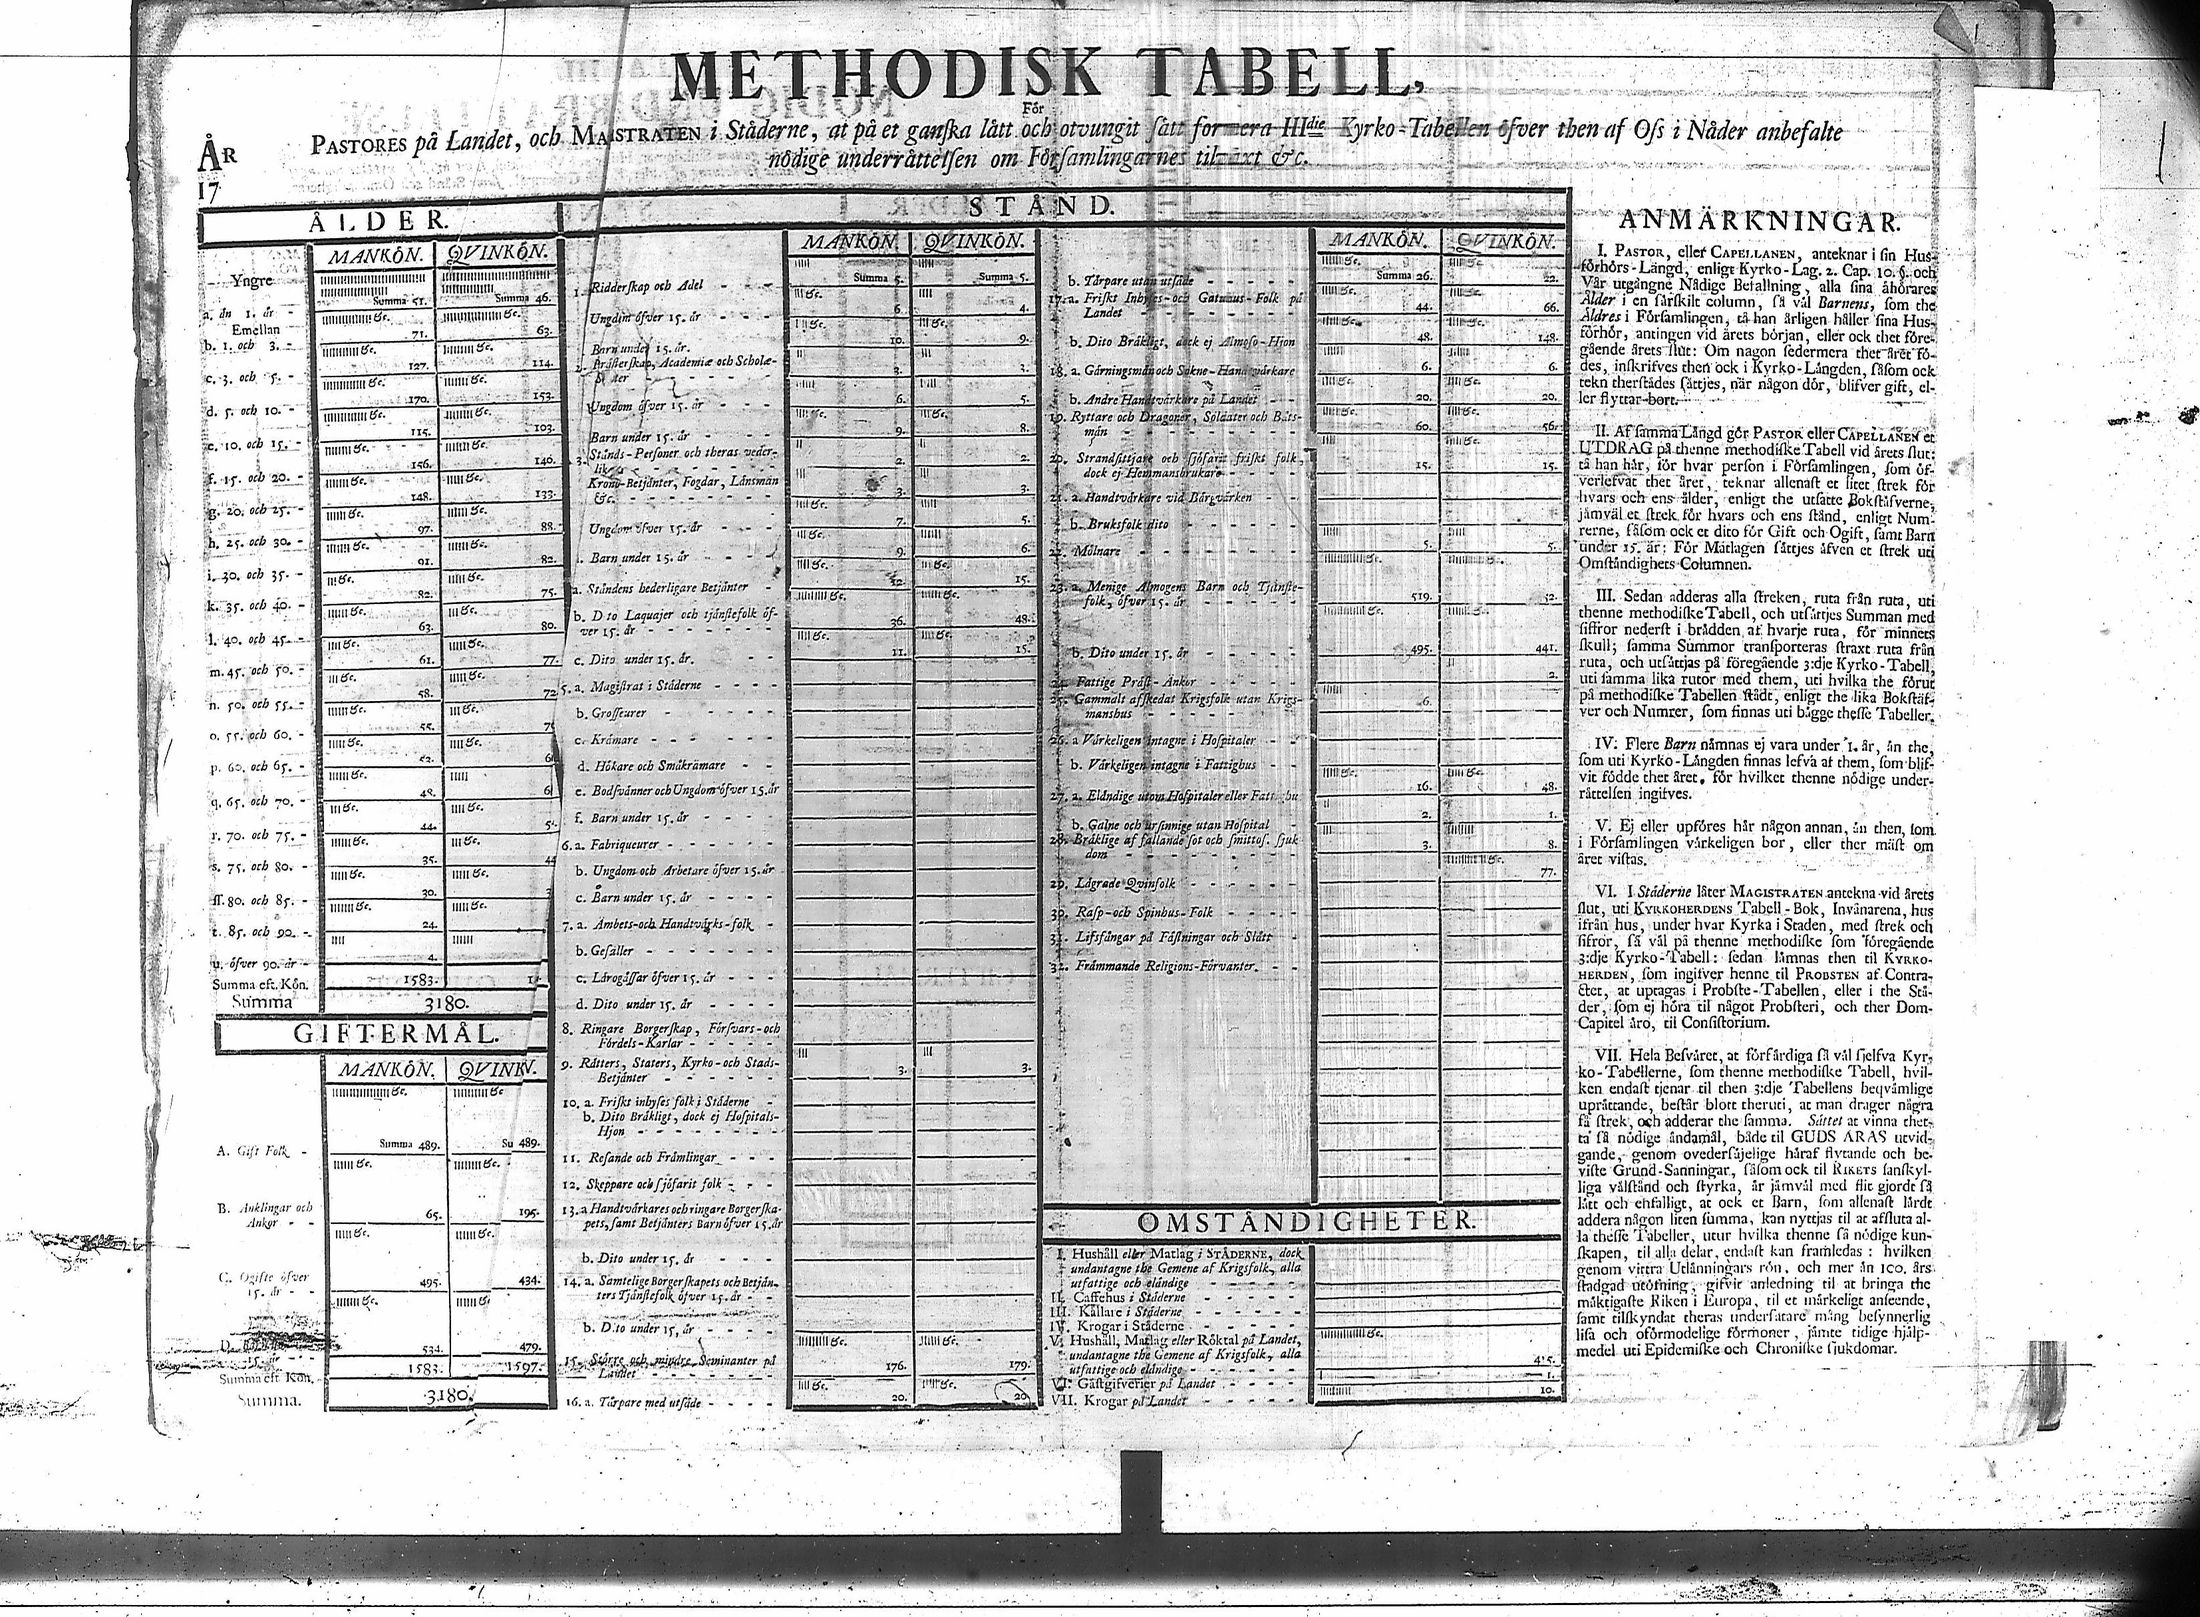 METHODISK TABELL,
För
PASTORES på Landet, och MAGISTRATEN i Ståderne, at på et ganſka lått och otvungit ſått formera IIIdie Kyrko-Tabellen öfver then af Oſs i Nåder anbefalte
nödige underråttelſen om Förſamlingarnes tilväxt &c.
ÅR
17
ÅLDER.
MANKÖN. QVINKÖN.
Yngre
Summa 51. Summa 46.
a. än 1. år -
Emellan
71. 63.
b. 1. och 3. -
127. 114.
c. 3. och 5. -
170. 153.
d. 5. och 10. -
115. 103.
e. 10. och 15. -
156. 140.
f. 15. och 20. -
148. 133.
g. 20. och 25. -
97. 88.
h. 25. och 30. -
91. 82.
i. 30. och 35. -
82. 75.
k. 35. och 40. -
63. 80.
l. 40. och 45. -
61. 77.
m. 45. och 50. -
58. 72
n. 50. och 55. -
55.
o. 55. och 60. -
p. 60. och 65. -
48.
q. 65. och 70. -
44.
r. 70. och 75. -
35. 44
s. 75. och 80. -
30.
ſſ. 80. och 85. -
24.
t. 85. och 90. -
4.
u. öfver 90. år -
Summa eft. Kön. 1583.
Summa 3180.
GIFTERMÅL.
MANKÖN. QVINKV.
A. Gift Folk - Summa 489. Su 489.
B. Änklingar och
Änkor - - 65. 195.
C. Ogifte öfver
15. år - - 495. 434.
534. 479.
15. år - -
Summa eft. Kön. 1583. 1597.
Summa. 3180.
STÅND.
MANKÖN. QVINKÖN.
Summa 5. Summa 5.
1. Ridderſkap och Adel - - - -
6. 4.
Ungdom öfver 15. år - - - -
10. 9.
Barn under 15. år.
2. Pråſterſkap, Academiæ och Scholæ-
3. 3.
Ungdom öfver 15. år - - - -
6. 5.
9. 8.
Barn under 15. år - - - -
3. Stånds-Perſoner och theras veder-
2. 2.
Krono-Betjånter, Fogdar, Lånsmån
&c. - - - - - - - 3. 3.
Ungdom öfver 15. år - - - - 7. 5.
Barn under 15. år - - - - 9. 6.
a. Ståndens hederligare Betjånter - 12. 15.
b. Dito Laquajer och tjånſtefolk öf-
ver 15. år - - - - - - - 36. 48.
c. Dito under 15. år. - - - - 11. 15.
5. a. Magiſtrat i Ståderne - - - -
b. Groſſeurer - - - - - -
c. Kråmare - - - - - -
d. Hökare och Småkråmare - -
e. Bodſvånner och Ungdom öfver 15. år
f. Barn under 15. år - - - -
6. a. Fabriqueurer - - - - - -
b. Ungdom och Arbetare öfver 15. år
c. Barn under 15. år - - - -
7. a. Åmbets-och Handtvårks-folk -
b. Geſåller - - - - - - -
c. Lårogåſſar öfver 15. år - - -
d. Dito under 15. år - - - -
8. Ringare Borgerſkap, Förſvars-och
Fördels-Karlar - - - - -
9. Råtters, Staters, Kyrko-och Stads-
Betjånter - - - - - - - 3. 3.
10. a. Friſkt inhyſes folk i Ståderne -
b. Dito Bråkligt, dock ej Hoſpitals-
Hjon - - - - - - - -
11. Reſande och Fråmlingar - - -
12. Skeppare och ſjöfarit folk - - -
13. a Handtvårkares och ringare Borgerſka-
pets, ſamt Betjånters Barn öfver 15. år
b. Dito under 15. år - - - -
14. a. Samtelige Borgerſkapets och Betjån-
ters Tjånſtefolk öfver 15. år - -
b. Dito under 15. år - - - -
15. Större och mindre Seminanter på
Landet - - - - - - - 176. 179.
16. a. Tårpare med utſåde - - - - 20. 20
MANKÖN. QVINKÖN.
b. Tårpare utan utſåde - - - - Summa 26. 22.
17. a. Friſkt Inhyſes-och Gatuhus-Folk på
Landet - - - - - - - 44. 66.
48. 148.
b. Dito Bråkligt, dock ej Almoſo-Hjon
18. a. Gårningsmån och Sokne-Handtvårkare 6. 6.
b. Andre Handtvårkare på Landet - - 20. 20.
19. Ryttare och Dragoner, Soldater och Båts-
mån - - - - - - - - 60. 56.
20. Strandſittjare och ſjöfarit friſkt folk,
dock ej Hemmansbrukare - - - 15. 15.
21. a. Handtvårkare vid Bårgvårken - -
b. Bruksfolk dito - - - - -
22. Mölnare - - - - - - - 5. 5.
23. a. Menige Almogens Barn och Tjånſte-
folk, öfver 15. år - - - - - 519. 52.
b. Dito under 15. år - - - - - 495. 441.
24. Fattige Pråſt-Ånkor - - - - 2.
25. Gammalt afſkedat Krigsfolk utan Krigs-
manshus - - - - - - - 6.
26. a Vårkeligen intagne i Hoſpitaler - -
b. Vårkeligen intagne i Fattighus - -
16. 48.
27. a. Elåndige utom Hoſpitaler eller Fattighus
2. 1.
b. Galne och urſinnige utan Hoſpital -
28. Bråklige af fallande ſot och ſmittoſ. ſjuk
dom - - - - - - - - 3. 8.
77.
29. Lågrade Qvinfolk - - - - - -
30. Raſp-och Spinhus-Folk - - - -
31. Lifsfångar på Fåſtningar och Slått -
32. Fråmmande Religions-Förvanter. - -
OMSTÅNDIGHETER.
I. Hushåll eller Matlag i STÅDERNE, dock
undantagne the Gemene af Krigsfolk, alla
utfattige och elåndige - - - - -
II. Caffehus i Ståderne - - - - -
III. Kållare i Ståderne - - - - -
IV. Krogar i Ståderne - - - - -
V. Hushåll, Matlag eller Röktal på Landet,
undantagne the Gemene af Krigsfolk, alla
utfattige och elåndige - - - - - 415.
VI. Gåſtgifverier på Landet - - - - 1.
VII. Krogar på Landet - - - - - 10.
ANMÄRKNINGAR.
I. PASTOR, eller CAPELLANEN, anteknar i ſin Hus-
förhörs-Långd, enligt Kyrko-Lag. 2. Cap. 10. §. och
Vår utgångne Nådige Befallning, alla ſina åhörares
Ålder i en ſårſkilt column, ſå vål Barnens, ſom the
Åldres i Förſamlingen, tå han årligen håller ſina Hus-
förhör, antingen vid årets början, eller ock thet före-
gående årets ſlut: Om nagon ſedermera thet året fö-
des, inſkrifves then ock i Kyrko-Långden, ſåſom ock
tekn therſtådes ſåttjes, når någon dör, blifver gift, el-
ler flyttar bort.
II. Af ſamma Långd gör PASTOR eller CAPELLANEN et
UTDRAG på thenne methodiſke Tabell vid årets ſlut:
tå han hår, för hvar perſon i Förſamlingen, ſom öf-
verlefvat thet året, teknar allenaſt et litet ſtrek för
hvars och ens ålder, enligt the utſatte Bokſtåfverne,
jåmvål et ſtrek för hvars och ens ſtånd, enligt Num-
rerne, ſåſom ock et dito för Gift och Ogift, ſamt Barn
under 15. år: För Matlagen ſåttjes åfven et ſtrek uti
Omſtåndighets-Columnen.
III. Sedan adderas alla ſtreken, ruta från ruta, uti
thenne methodiſke Tabell, och utſåttjes Summan med
ſiffror nederſt i brådden af hvarje ruta, för minnets
ſkull; ſamma Summor tranſporteras ſtraxt ruta från
ruta, och utſåttjas på föregående 3:dje Kyrko-Tabell,
uti ſamma lika rutor med them, uti hvilka the förut
på methodiſke Tabellen ſtådt, enligt the lika Bokſtåf-
ver och Numrer, ſom finnas uti bågge theſſe Tabeller.
IV. Flere Barn nåmnas ej vara under 1. år, ån the,
ſom uti Kyrko-Långden finnas lefva af them, ſom blif-
vit födde thet året, för hvilket thenne nödige under-
råttelſen ingifves.
V. Ej eller upföres hår någon annan, ån then, ſom
i Förſamlingen vårkeligen bor, eller ther måſt om
året viſtas.
VI. I Ståderne låter MAGISTRATEN antekna vid årets
ſlut, uti KYRKOHERDENS Tabell-Bok, Invånarena, hus
ifrån hus, under hvar Kyrka i Staden, med ſtrek och
ſifror, ſå vål på thenne methodiſke ſom föregående
3:dje Kyrko-Tabell: ſedan låmnas then til KYRKO-
HERDEN, ſom ingifver henne til PROBSTEN af Contra-
ctet, at uptagas i Probſte-Tabellen, eller i the Stå-
der, ſom ej höra til något Probſteri, och ther Dom-
Capitel åro, til Conſiſtorium.
VII. Hela Beſvåret, at förfårdiga ſå vål ſjelfva Kyr-
ko-Tabellerne, ſom thenne methodiſke Tabell, hvil-
ken endaſt tjenar til then 3:dje Tabellens beqvåmlige
upråttande, beſtår blott theruti, at man drager några
få ſtrek, och adderar the ſamma. Såttet at vinna thet-
ta ſå nödige åndamål, både til GUDS ÅRAS utvid-
gande, genom ovederſåjelige håraf flytande och be-
viſte Grund-Sanningar, ſåſom ock til RIKETS ſanſkyl-
liga vålſtånd och ſtyrka, år jåmvål med flit gjordt ſå
lått och enfålligt, at ock et Barn, ſom allenaſt lårdt
addera någon liten ſumma, kan nyttjas til at afſluta al-
la theſſe Tabeller, utur hvilka thenne ſå nödige kun-
ſkapen, til alla delar, endaſt kan framledas: hvilken
genom vittra Utlånningars rön, och mer ån 100. års
ſtadgad utöfning, gifvit anledning til at bringa the
måktigaſte Riken i Europa, til et mårkeligt anſeende,
ſamt tilſkyndat theras underſåtare mång beſynnerlig
liſa och oförmodelige förmoner, jåmte tidige hjålp-
medel uti Epidemiſke och Chroniſke ſjukdomar.